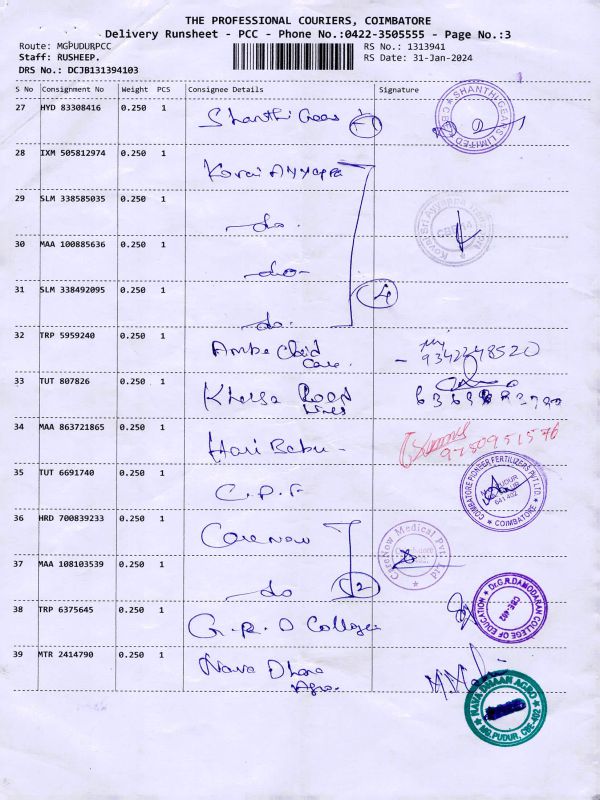 THE PROFESSIONAL COURIERS, COIMBATORE
Delivery Runsheet - PCC - Phone No.:0422-3505555 - Page No.:3
Route: MGPUDURPCC
RS No.: 1313941
Staff: RUSHEEP.
RS Date: 31-Jan-2024
DRS No.: DCJB131394103
S No Consignment No Weight PCS Consignee Details Signature
27 HYD 83308416 0.250 1 Shanthi Gears 1
SHANTHI GEARS LIMITED CBE
28 IXM 505812974 0.250 1 Kovai Ayyappa
29 SLM 338585035 0.250 1 do.
30 MAA 100885636 0.250 1 do-
31 SLM 338492095 0.250 1 do. 4
32 TRP 5959240 0.250 1 Ambe Child Care. - 9342248520
33 TUT 807826 0.250 1 Khelsa Lines
34 MAA 863721865 0.250 1 Hari Babu - 9750951576
35 TUT 6691740 0.250 1 C.P.F
COIMBATORE PIONEER FERTILIZERS PVT LTD. COIMBATORE 641 402
36 HRD 700839233 0.250 1 Carenow
CareNow Medical Pvt. Ltd
37 MAA 108103539 0.250 1 do 2
38 TRP 6375645 0.250 1 G.R.D College
Dr.G.R.DAMODARAN COLLEGE OF EDUCATION CBE-402
39 MTR 2414790 0.250 1 Nava Dhane Agro.
NAVA DHAAN AGRO MG.PUDUR, CBE-402